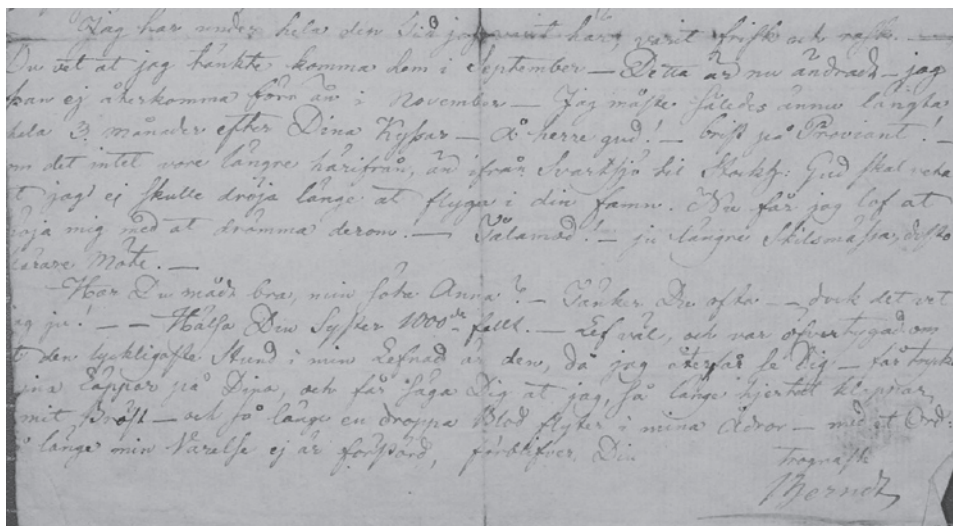 Jag har under hela den Tid jag varit här, varit frisk och rask. —
Du vet at jag tänkte komma hem i September — Detta är nu ändradt — jag
kan ej återkomma förr än i November — Jag måste således ännu längta
hela 3 månader efter Dina Kyssar — Å herre gud! — brist på Proviant! —
om det intet vore längre härifrån, än ifrån Svartsjö til Stockh: Gud skal veta
at jag ej skulle dröja länge at flyga i din famn. Nu får jag lof at
nöja mig med at drömma derom! — Tålamod! — ju längre Skilsmässa, desto
kärare Möte. —
Har Du mådt bra, min söta Anna? — Tänker Du ofta — — dock det vet
jag ju! — — Hälsa Din Syster 1000de fallt. — Lef väl, och var öfvertygad om
at den lyckligaste Stund i min Lefnad är den, då jag återfår se Dig — får trycka
mina Läppar på Dina, och får säga Dig at jag, så länge hjertat klappar
mit Bröst — och så länge en droppa Blod flyter i mina Ådror — med et Ord:
så länge min Varelse ej är förstörd, förblifver Din
trognaste
Berndt